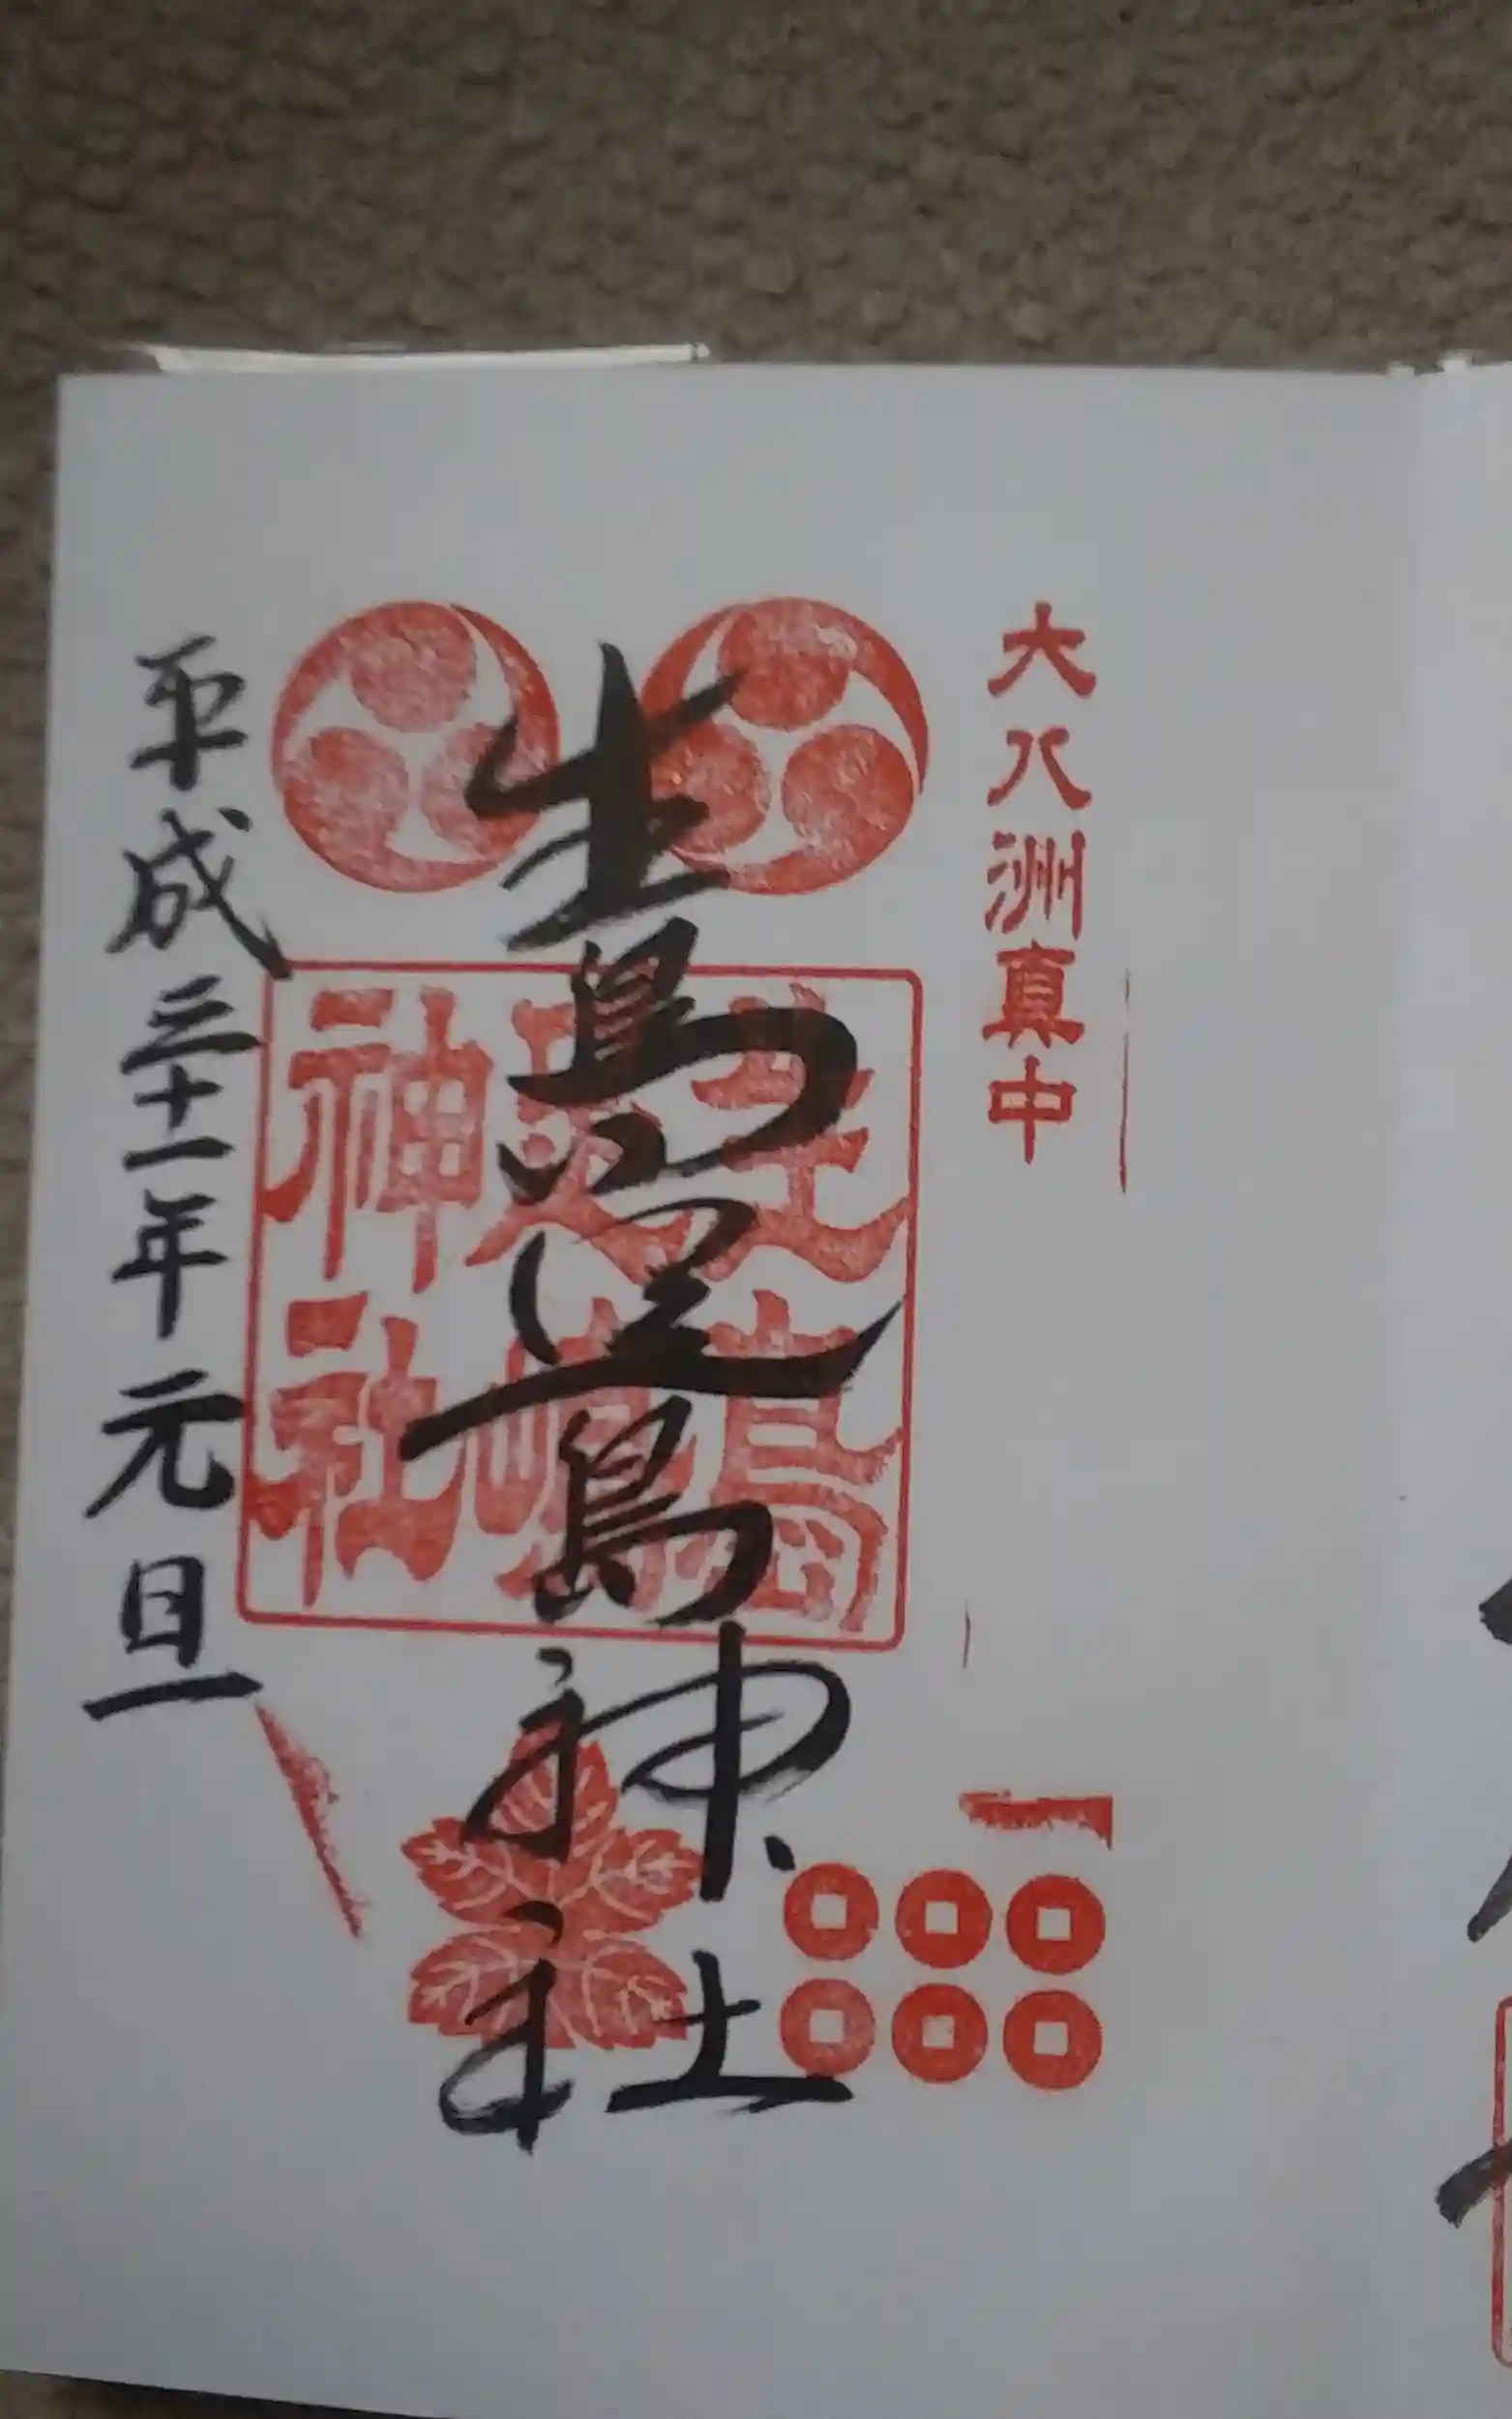 大八洲真中
生島足島神社
神社
平成三十一年元旦